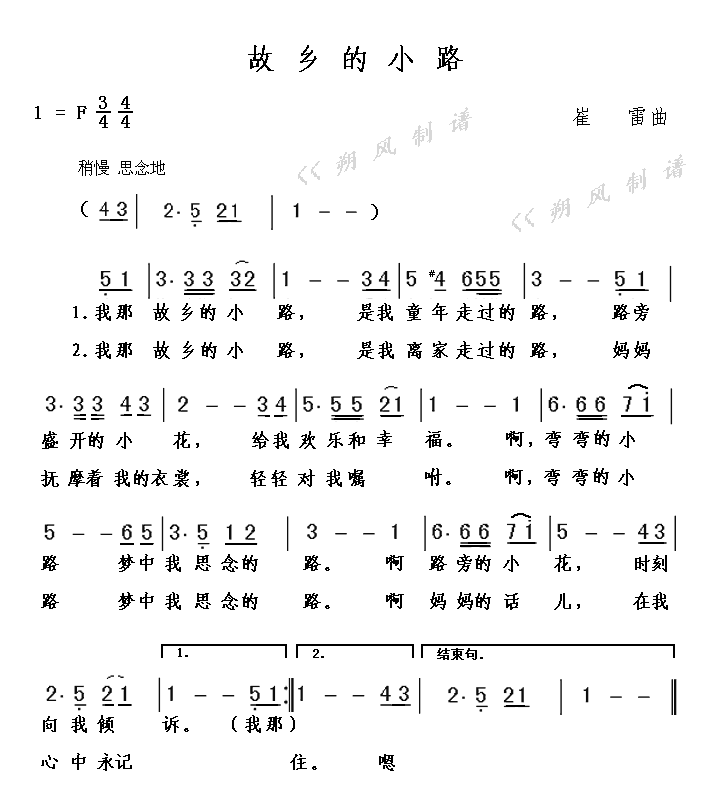 故乡的小路
1 = F 3/4 4/4
崔 雷曲
<< 朔风制谱
稍慢 思念地
<< 朔风制谱
( 4 3 | 2 · 5 2 1 | 1 - - )
5 1 | 3 · 3 3 3 2 | 1 - - 3 4 | 5 #4 6 5 5 | 3 - - 5 1 |
1.我那 故乡的小 路, 是我童年走过的路, 路旁
2.我那 故乡的小 路, 是我离家走过的路, 妈妈
3 · 3 3 4 3 | 2 - - 3 4 | 5 · 5 5 2 1 | 1 - - 1 | 6 · 6 6 7 i |
盛开的小 花, 给我欢乐和幸 福。 啊,弯弯的小
抚摩着我的衣裳, 轻轻对我嘱 咐。 啊,弯弯的小
5 - - 6 5 | 3 · 5 1 2 | 3 - - 1 | 6 · 6 6 7 i | 5 - - 4 3 |
路 梦中我思念的 路。 啊 路旁的小 花, 时刻
路 梦中我思念的 路。 啊 妈妈的话 儿, 在我
1. 2. 结束句.
2 · 5 2 1 | 1 - - 5 1 :‖ 1 - - 4 3 | 2 · 5 2 1 | 1 - - ‖
向我倾 诉。 (我那)
心中永记 住。 嗯